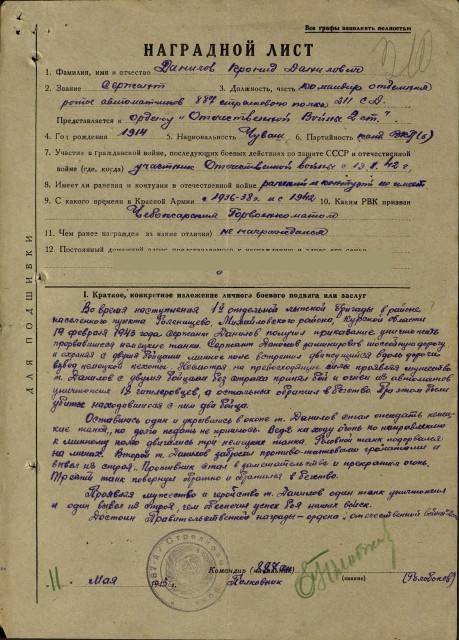 Все графы заполнять полностью
НАГРАДНОЙ ЛИСТ
1. Фамилия, имя и отчество Данилов Кронид Данилович
2. Звание Сержант 3. Должность, часть командир отделения
роты автоматчиков 887 стрелкового полка 211 С.Д.
Представляется к ордену "Отечественной Войны 2 ст."
4. Год рождения 1914 5. Национальность Чуваш 6. Партийность
7. Участие в гражданской войне, последующих боевых действиях по защите СССР и отечественной
войне (где, когда) участник Отечественной войны с
8. Имеет ли ранения и контузии в отечественной войне ранений и контузий не имеет
9. С какого времени в Красной Армии с 1936-38 г. и с 1942 10. Каким РВК призван
Чебоксарским Горвоенкоматом
11. Чем ранее награжден (за какие отличия) не награждался
12. Постоянный домашний адрес
ДЛЯ ПОДШИВКИ
I. Краткое, конкретное изложение личного боевого подвига или заслуг
Во время наступления 12 отдельной лыжной бригады в районе
населенного пункта Михайловского района, Курской области
19 февраля 1943 года Сержант Данилов получил приказание уничтожить
прорвавшиеся немецкие танки. Сержант Данилов заминировал шоссейную дорогу
и охраняя с двумя бойцами минное поле встретил движущийся вдоль дороги
взвод немецкой пехоты. Несмотря на превосходящие силы проявляя мужество
т. Данилов с двумя бойцами без страха принял бой и огнем из автоматов
уничтожил 12 гитлеровцев, а остальных обратил в бегство. При этом были
убиты находившиеся с ним два бойца.
Оставшись один и укрывшись в окопе т. Данилов стал ожидать немец-
кие танки, но долго ждать не пришлось. Ведя на ходу огонь по направлению
к минному полю двигались три немецких танка. Первый танк подорвался
на минах. Второй т. Данилов забросал противо-танковыми гранатами и
вывел из строя. Противник стал в замешательстве и прекратил огонь.
Третий танк повернул обратно и обратился в бегство.
Проявляя мужество и геройство т. Данилов один танк уничтожил
и один вывел из строя, чем обеспечил успех боя наших войск.
Достоин Правительственной награды - ордена "отечественной войны
Командир (начальник) 887 сп
Полковник (звание) (Гълобоков)
11 мая